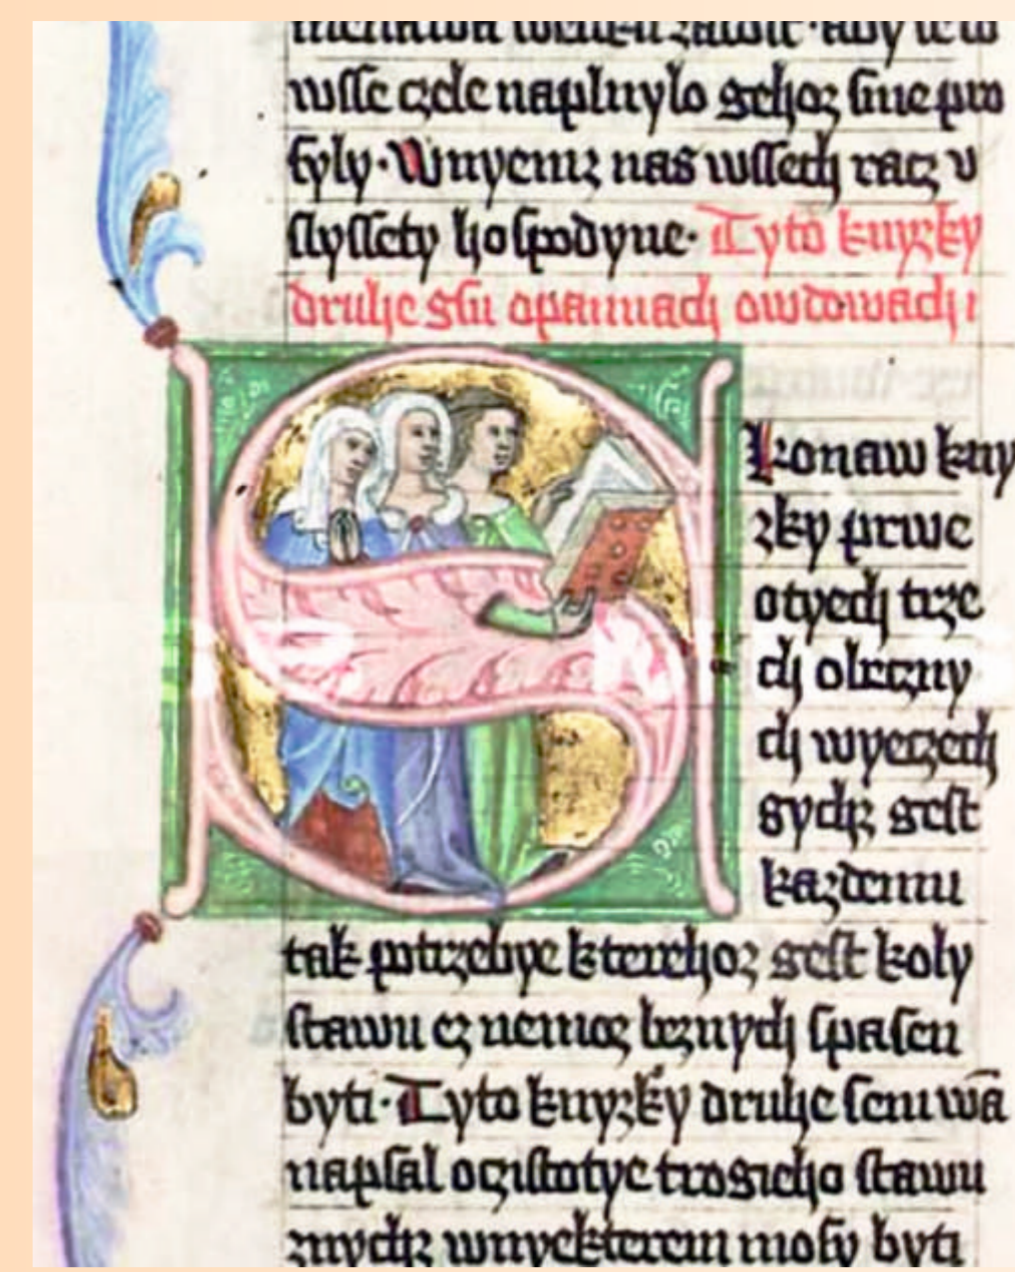 wſſe czele naplnylo gehoz ſme pro
ſyly · Wnyemz nas wſſech racz v
ſlyſſety hoſpodyne · Tyto knyzky
druhe gſu opannach owdowach i
Skonaw kny
zky prwe
otyech trze
ch obeczny
ch wyeczech
gychz geſt
kazdemu
tak potrzebye kterehoz geſt koly
ſtawu cz nemoz beznych ſpaſen
byti · Tyto knyzky druhe ſem wā
napſal ocziſtotye trogieho ſtawu
znychz wnyekterem moſy byti